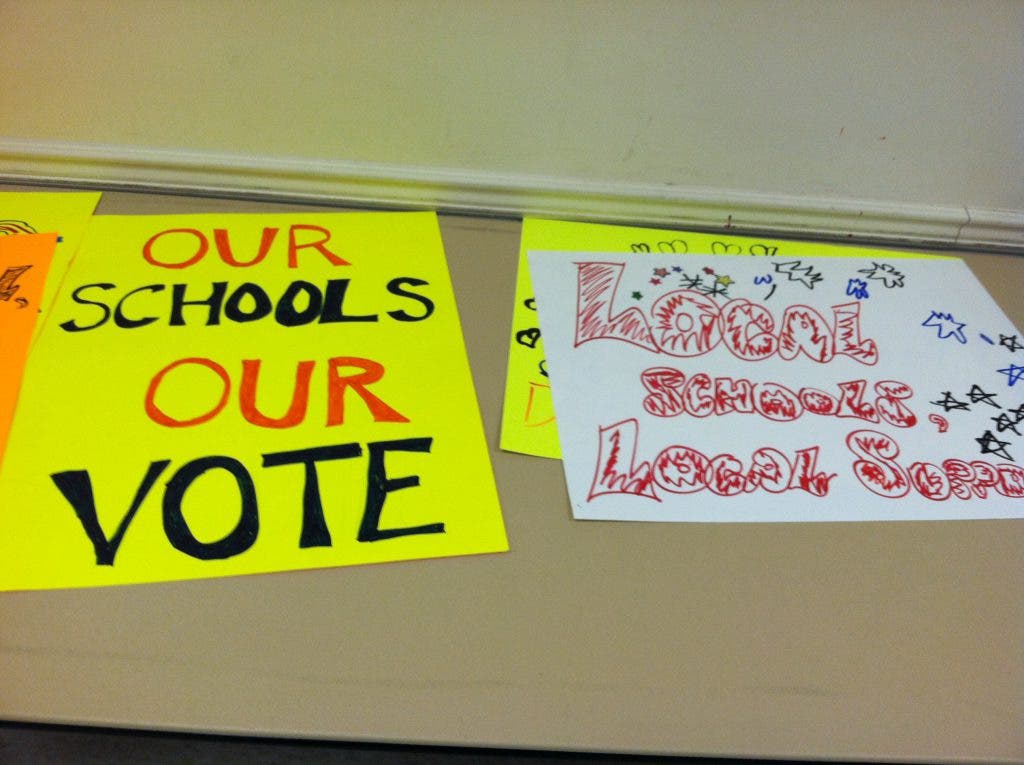 OUR
SCHOOLS
OUR
VOTE
LOCAL
SCHOOLS,
LOCAL